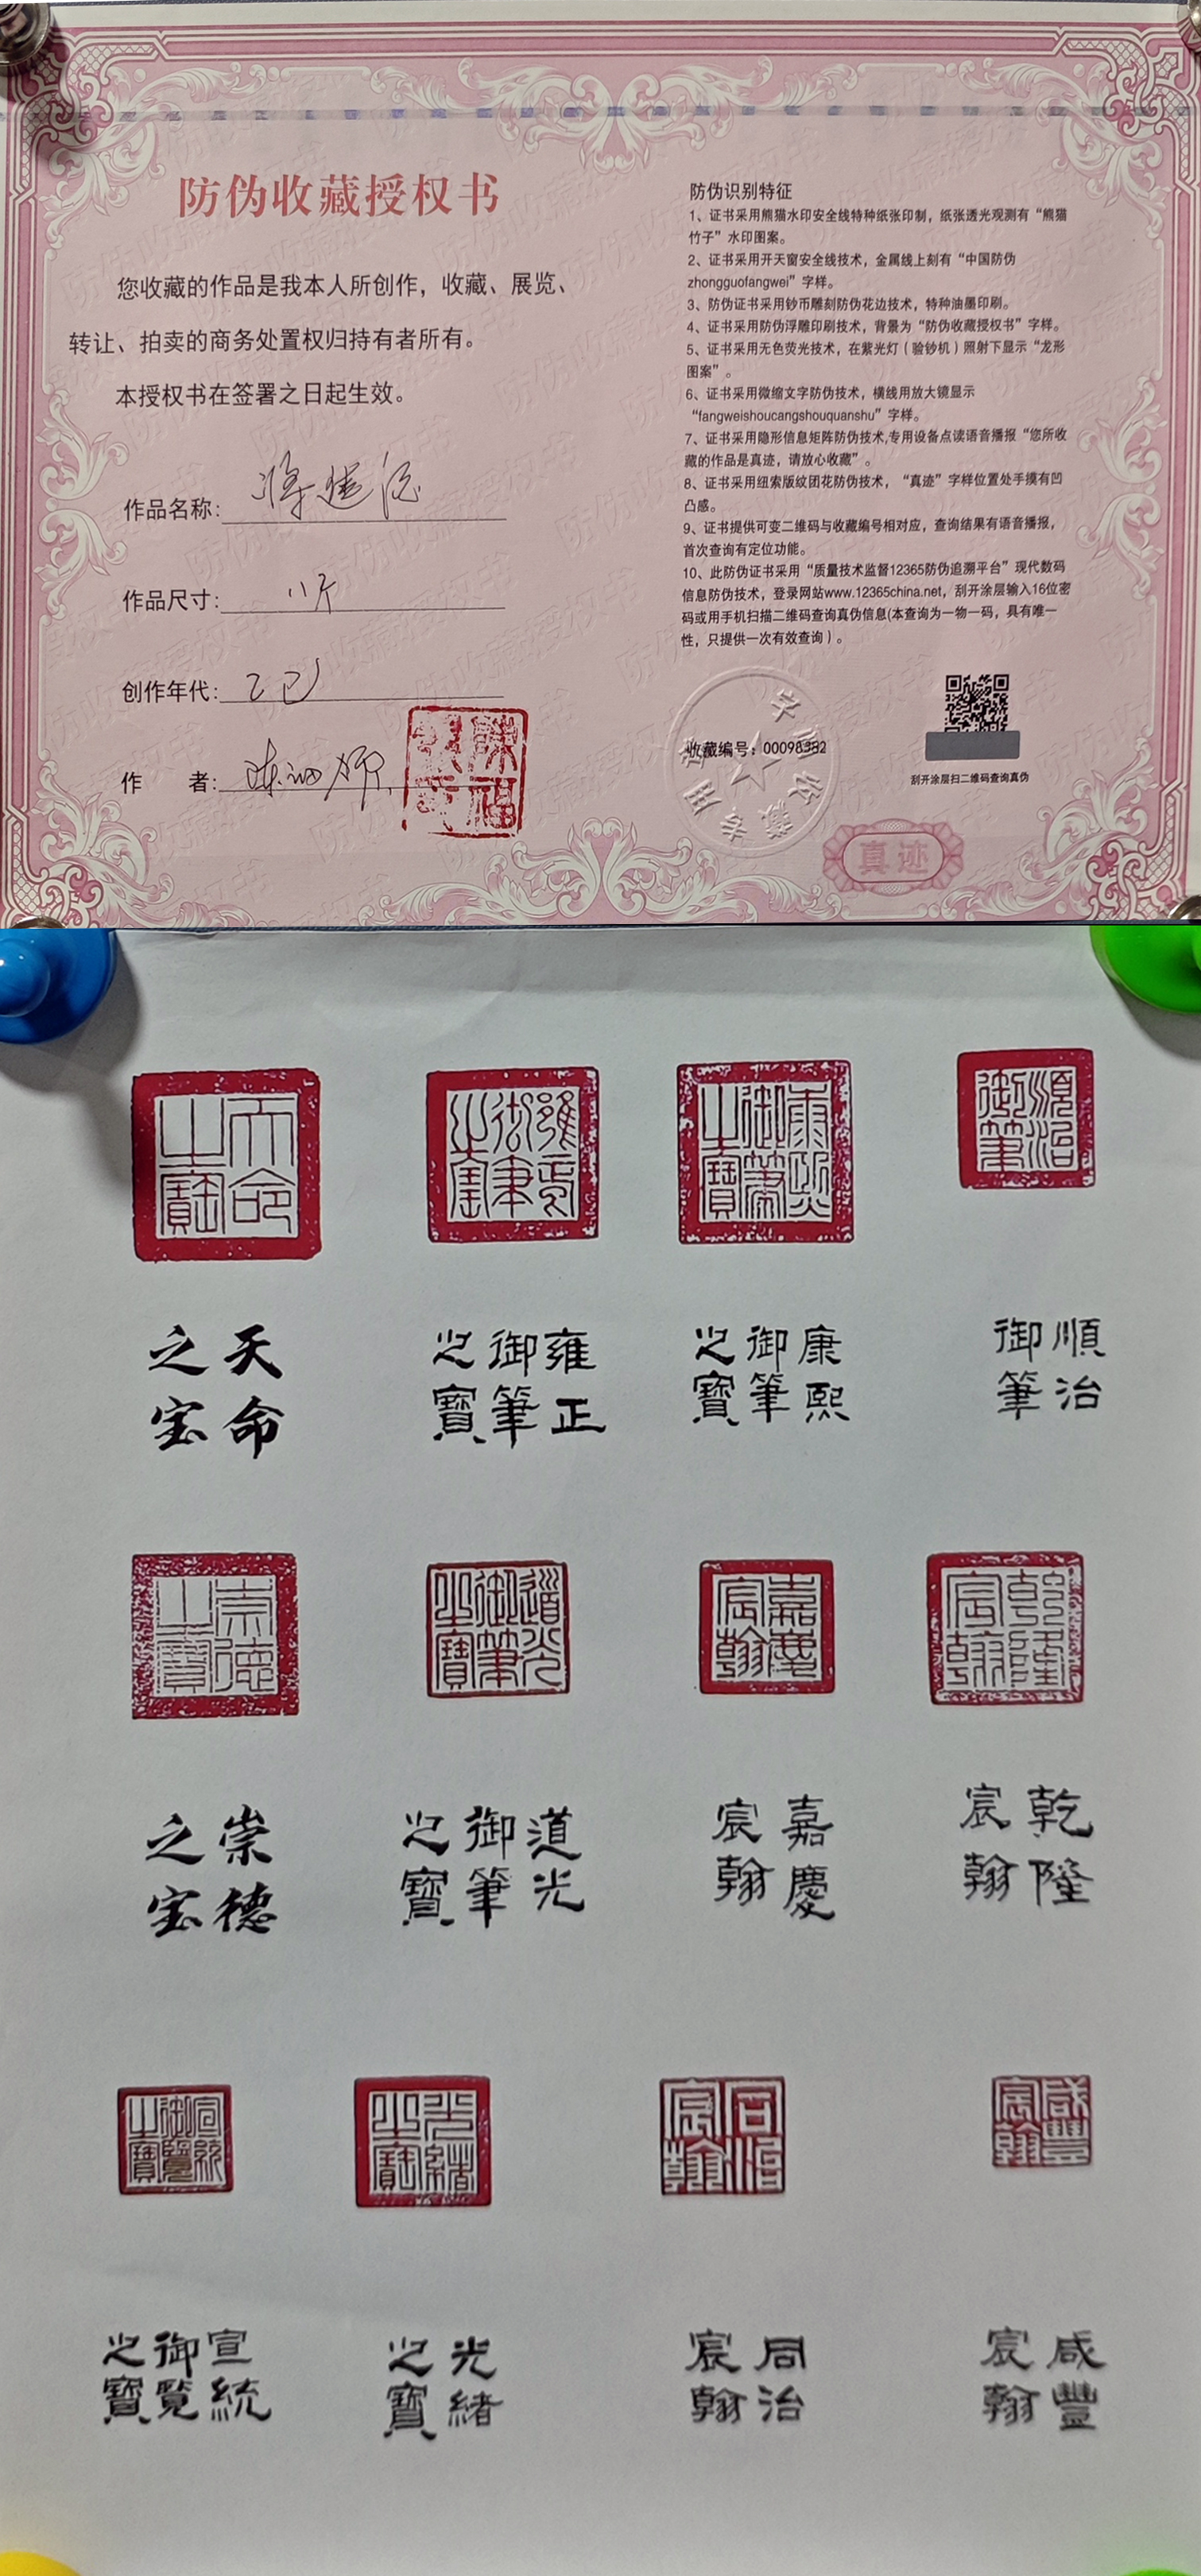 防伪收藏授权书
您收藏的作品是我本人所创作，收藏、展览、
转让、拍卖的商务处置权归持有者所有。
本授权书在签署之日起生效。
作品名称：
作品尺寸：
创作年代：乙巳
作　　者：
防伪识别特征
1、证书采用熊猫水印安全线特种纸张印制，纸张透光观测有“熊猫
竹子”水印图案。
2、证书采用开天窗安全线技术，金属线上刻有“中国防伪
zhongguofangwei”字样。
3、防伪证书采用钞币雕刻防伪花边技术，特种油墨印刷。
4、证书采用防伪浮雕印刷技术，背景为“防伪收藏授权书”字样。
5、证书采用无色荧光技术，在紫光灯（验钞机）照射下显示“龙形
图案”。
6、证书采用微缩文字防伪技术，横线用放大镜显示
“fangweishoucangshouquanshu”字样。
7、证书采用隐形信息矩阵防伪技术,专用设备点读语音播报“您所收
藏的作品是真迹，请放心收藏”。
8、证书采用纽索版纹团花防伪技术，“真迹”字样位置处手摸有凹
凸感。
9、证书提供可变二维码与收藏编号相对应，查询结果有语音播报，
首次查询有定位功能。
10、此防伪证书采用“质量技术监督12365防伪追溯平台”现代数码
信息防伪技术，登录网站www.12365china.net，刮开涂层输入16位密
码或用手机扫描二维码查询真伪信息(本查询为一物一码，具有唯一
性，只提供一次有效查询）。
收藏编号：00098382
刮开涂层扫二维码查询真伪
真迹
順治御筆
康熙御筆之寶
雍正御筆之寶
天命之寶
順治
御筆
康熙
御筆
之寶
雍正
御筆
之寶
天命
之宝
乾隆宸翰
嘉慶宸翰
道光御筆之寶
崇德之寶
乾隆
宸翰
嘉慶
宸翰
道光
御筆
之寶
崇德
之宝
咸豐宸翰
同治宸翰
光緒之寶
宣統御覽之寶
咸豐
宸翰
同治
宸翰
光緒
之寶
宣統
御覧
之寶